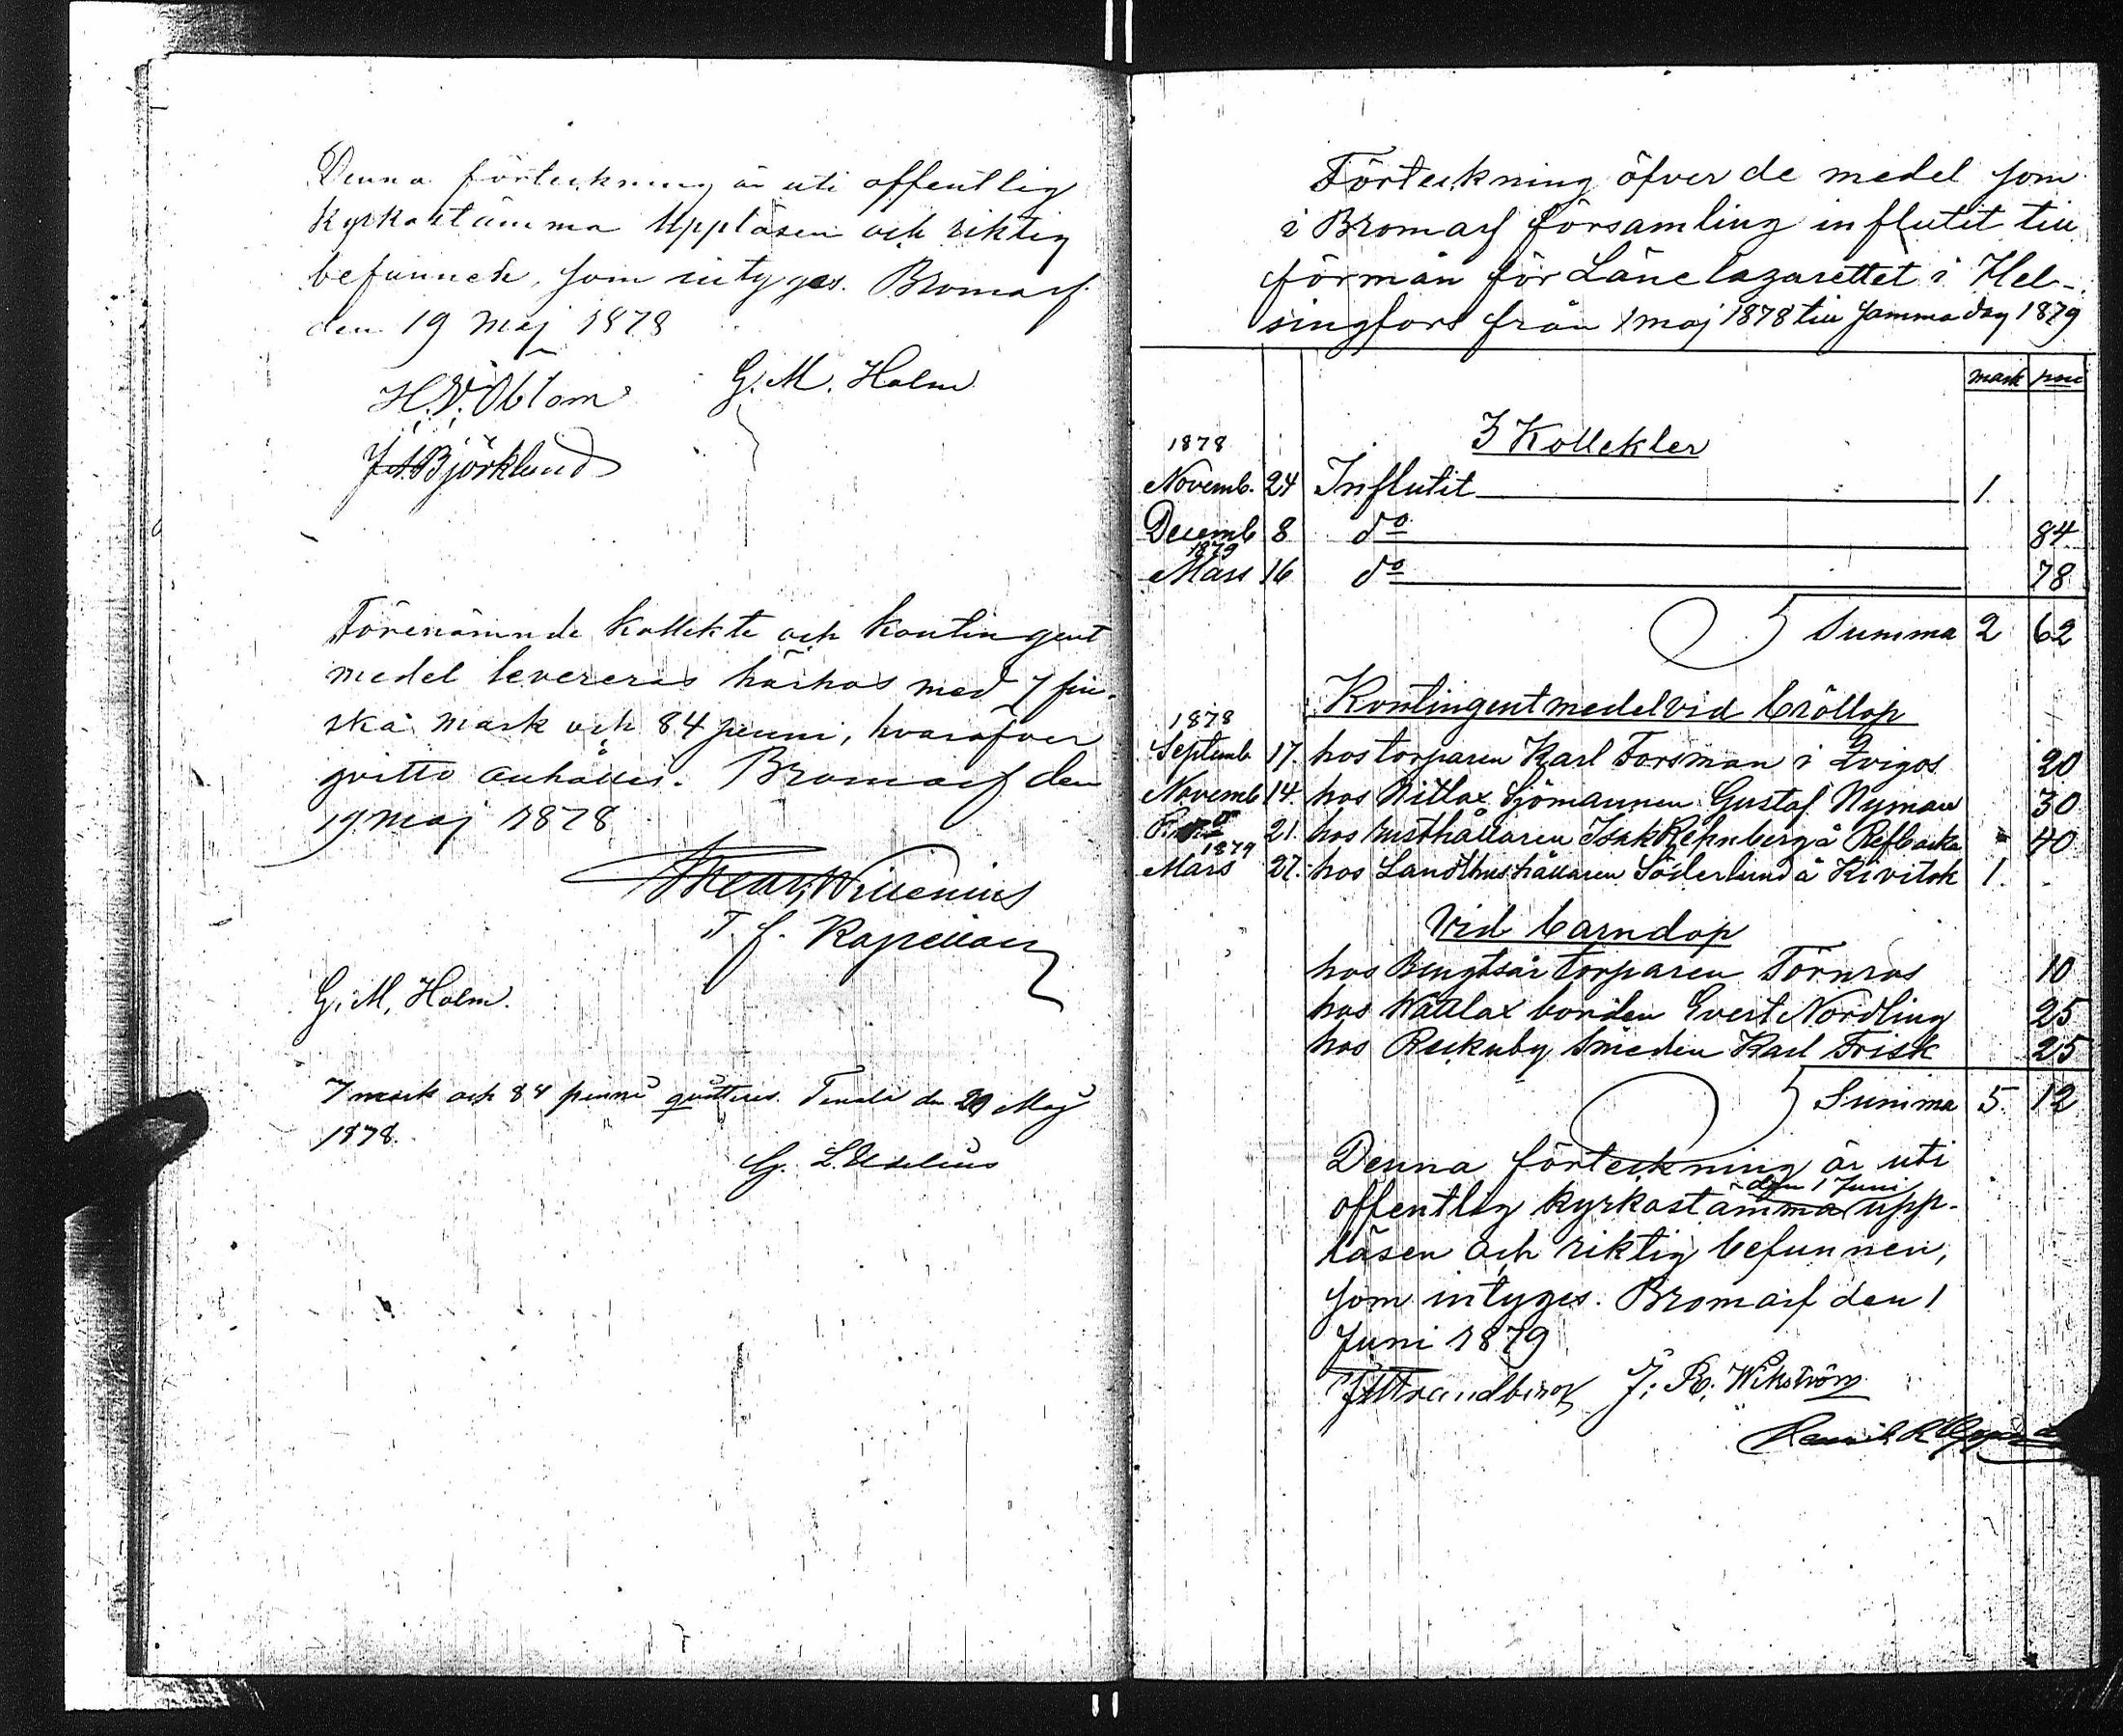 Denna förteckning är uti offentlig
kyrkostämma uppläsen och riktig
befunnen, som intyges. Bromarf
den 19 Maj 1878
G. M. Holm
J. A. Björklund
Förenämnde kollekte och kontingent
medel levereras härhos med 7 fin-
ska mark och 84 penni, hvaröfver
qvitto anhålles. Bromarf den
19 Maj 1878
T. f. Kapellan
G. M. Holm.
7 mark och 84 penni quitteras. Tenala den 20 Maj
1878.
Förteckning öfver de medel som
i Bromarf församling influtit till
förmån för Länelazarettet i Hel-
singfors från 1 maj 1878 till samma dag 1879
mark penni
3 Kollekter
1878
Novemb. 24 Influtit 1.
Decemb 8 do 84
1879
Mars 16 do 78
Summa 2 62
Kontingentmedel vid bröllop
1878
Septemb 17. hos torparen Karl Forsman i 20
Novemb 14. hos Nitlax Sjömannen Gustaf Nyman 30
do 21. hos rusthållaren Isak Rehnberg å Refbacka 40
1879
Mars 27. hos Landthushållaren Söderlund å Kivitok 1.
Vid barndop
hos Bengtsår torparen Törnros 10
hos Wättlax bonden Evert Nordling 25
hos Reckuby smeden Karl Frisk 25
Summa 5. 12
Denna förteckning är uti
den 1 Juni
offentlig kyrkostämma upp-
läsen och riktig befunnen,
som intyges. Bromarf den 1
Juni 1879
J. Strandberg J. R. Wikström